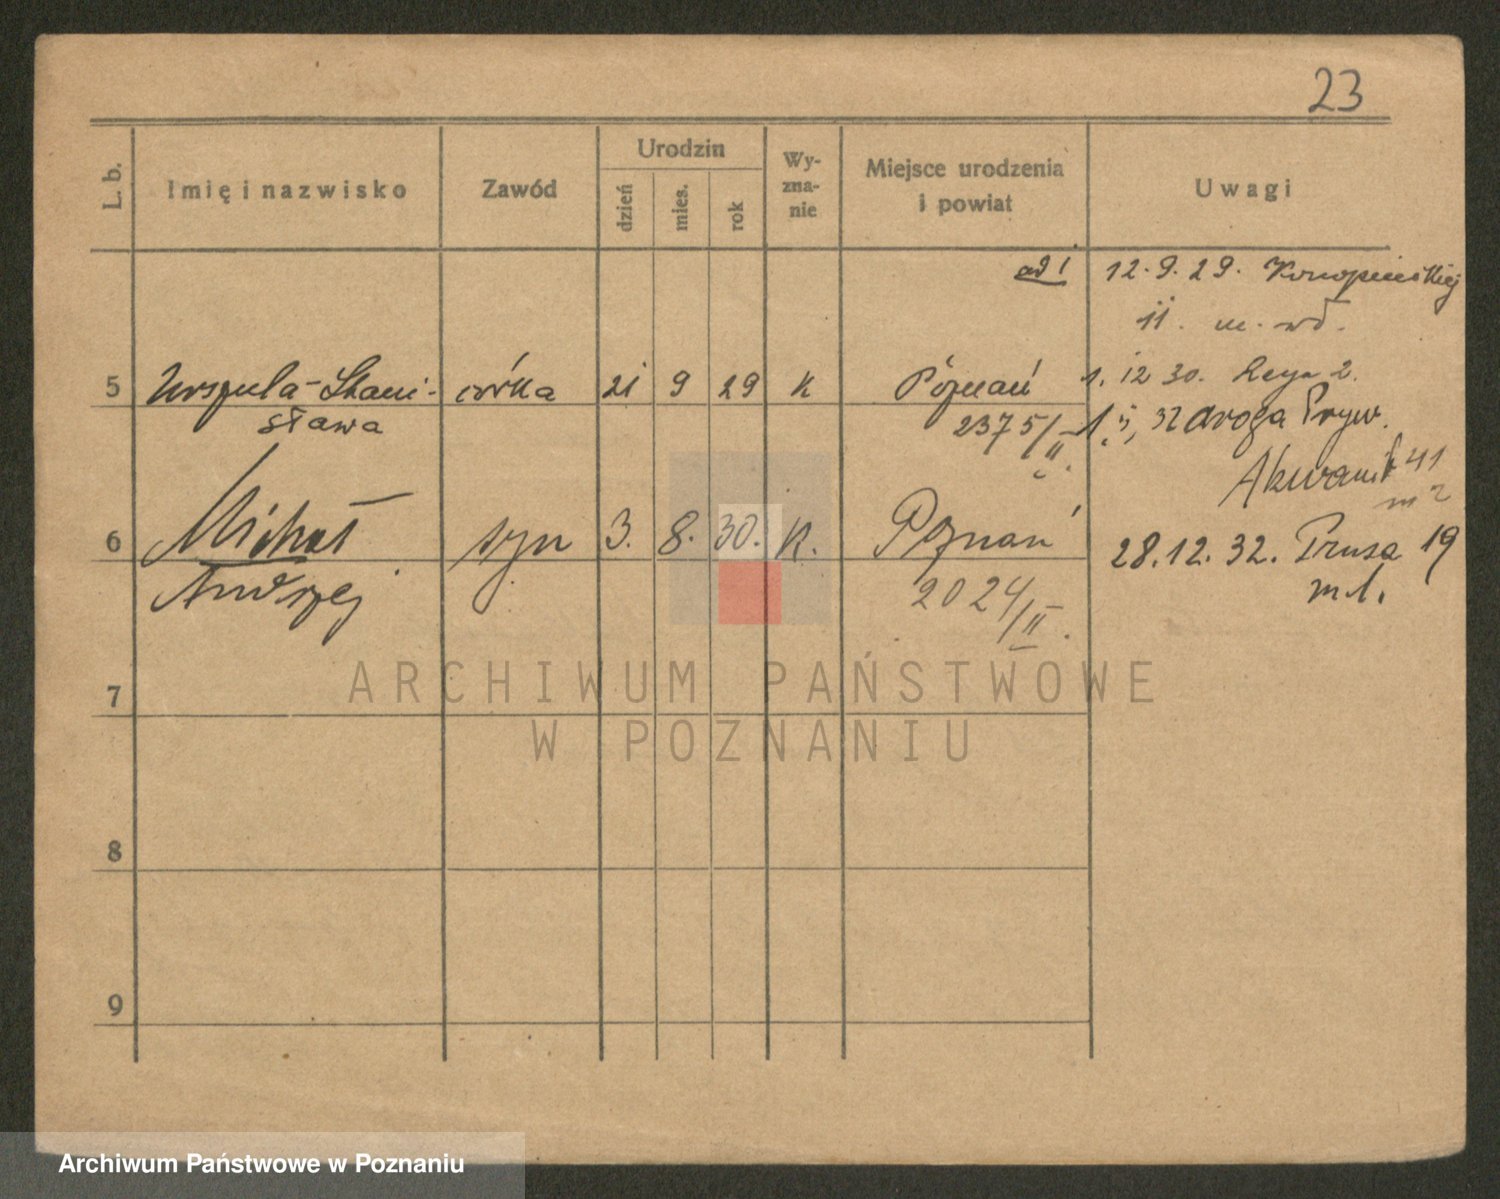 23
L. b.
Imię i nazwisko
Zawód
Urodzin
dzień
mies.
rok
Wy-
zna-
nie
Miejsce urodzenia
i powiat
Uwagi
ad 1 12.9.29. Konopnickiej
11. m.
5 Urszula-Stani- córka 21 9 29 K Poznań 1. 12 30. Reya 2.
sława 2375/II. 32 droga Pryw.
41
6 Michał syn 3. 8. 30. K. Poznań 28.12.32. Prusa 19
Andrzej 2024/II. m 1.
7
8
9
ARCHIWUM PAŃSTWOWE
W POZNANIU
Archiwum Państwowe w Poznaniu